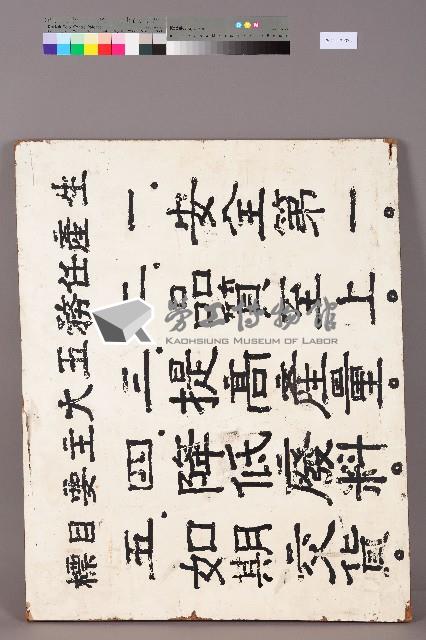 生產任務五大主要目標
一.安全第一。
二.品質至上。
三.提高產量。
四.降低廢料。
五.如期交貨。
勞工博物館
KAOHSIUNG MUSEUM OF LABOR